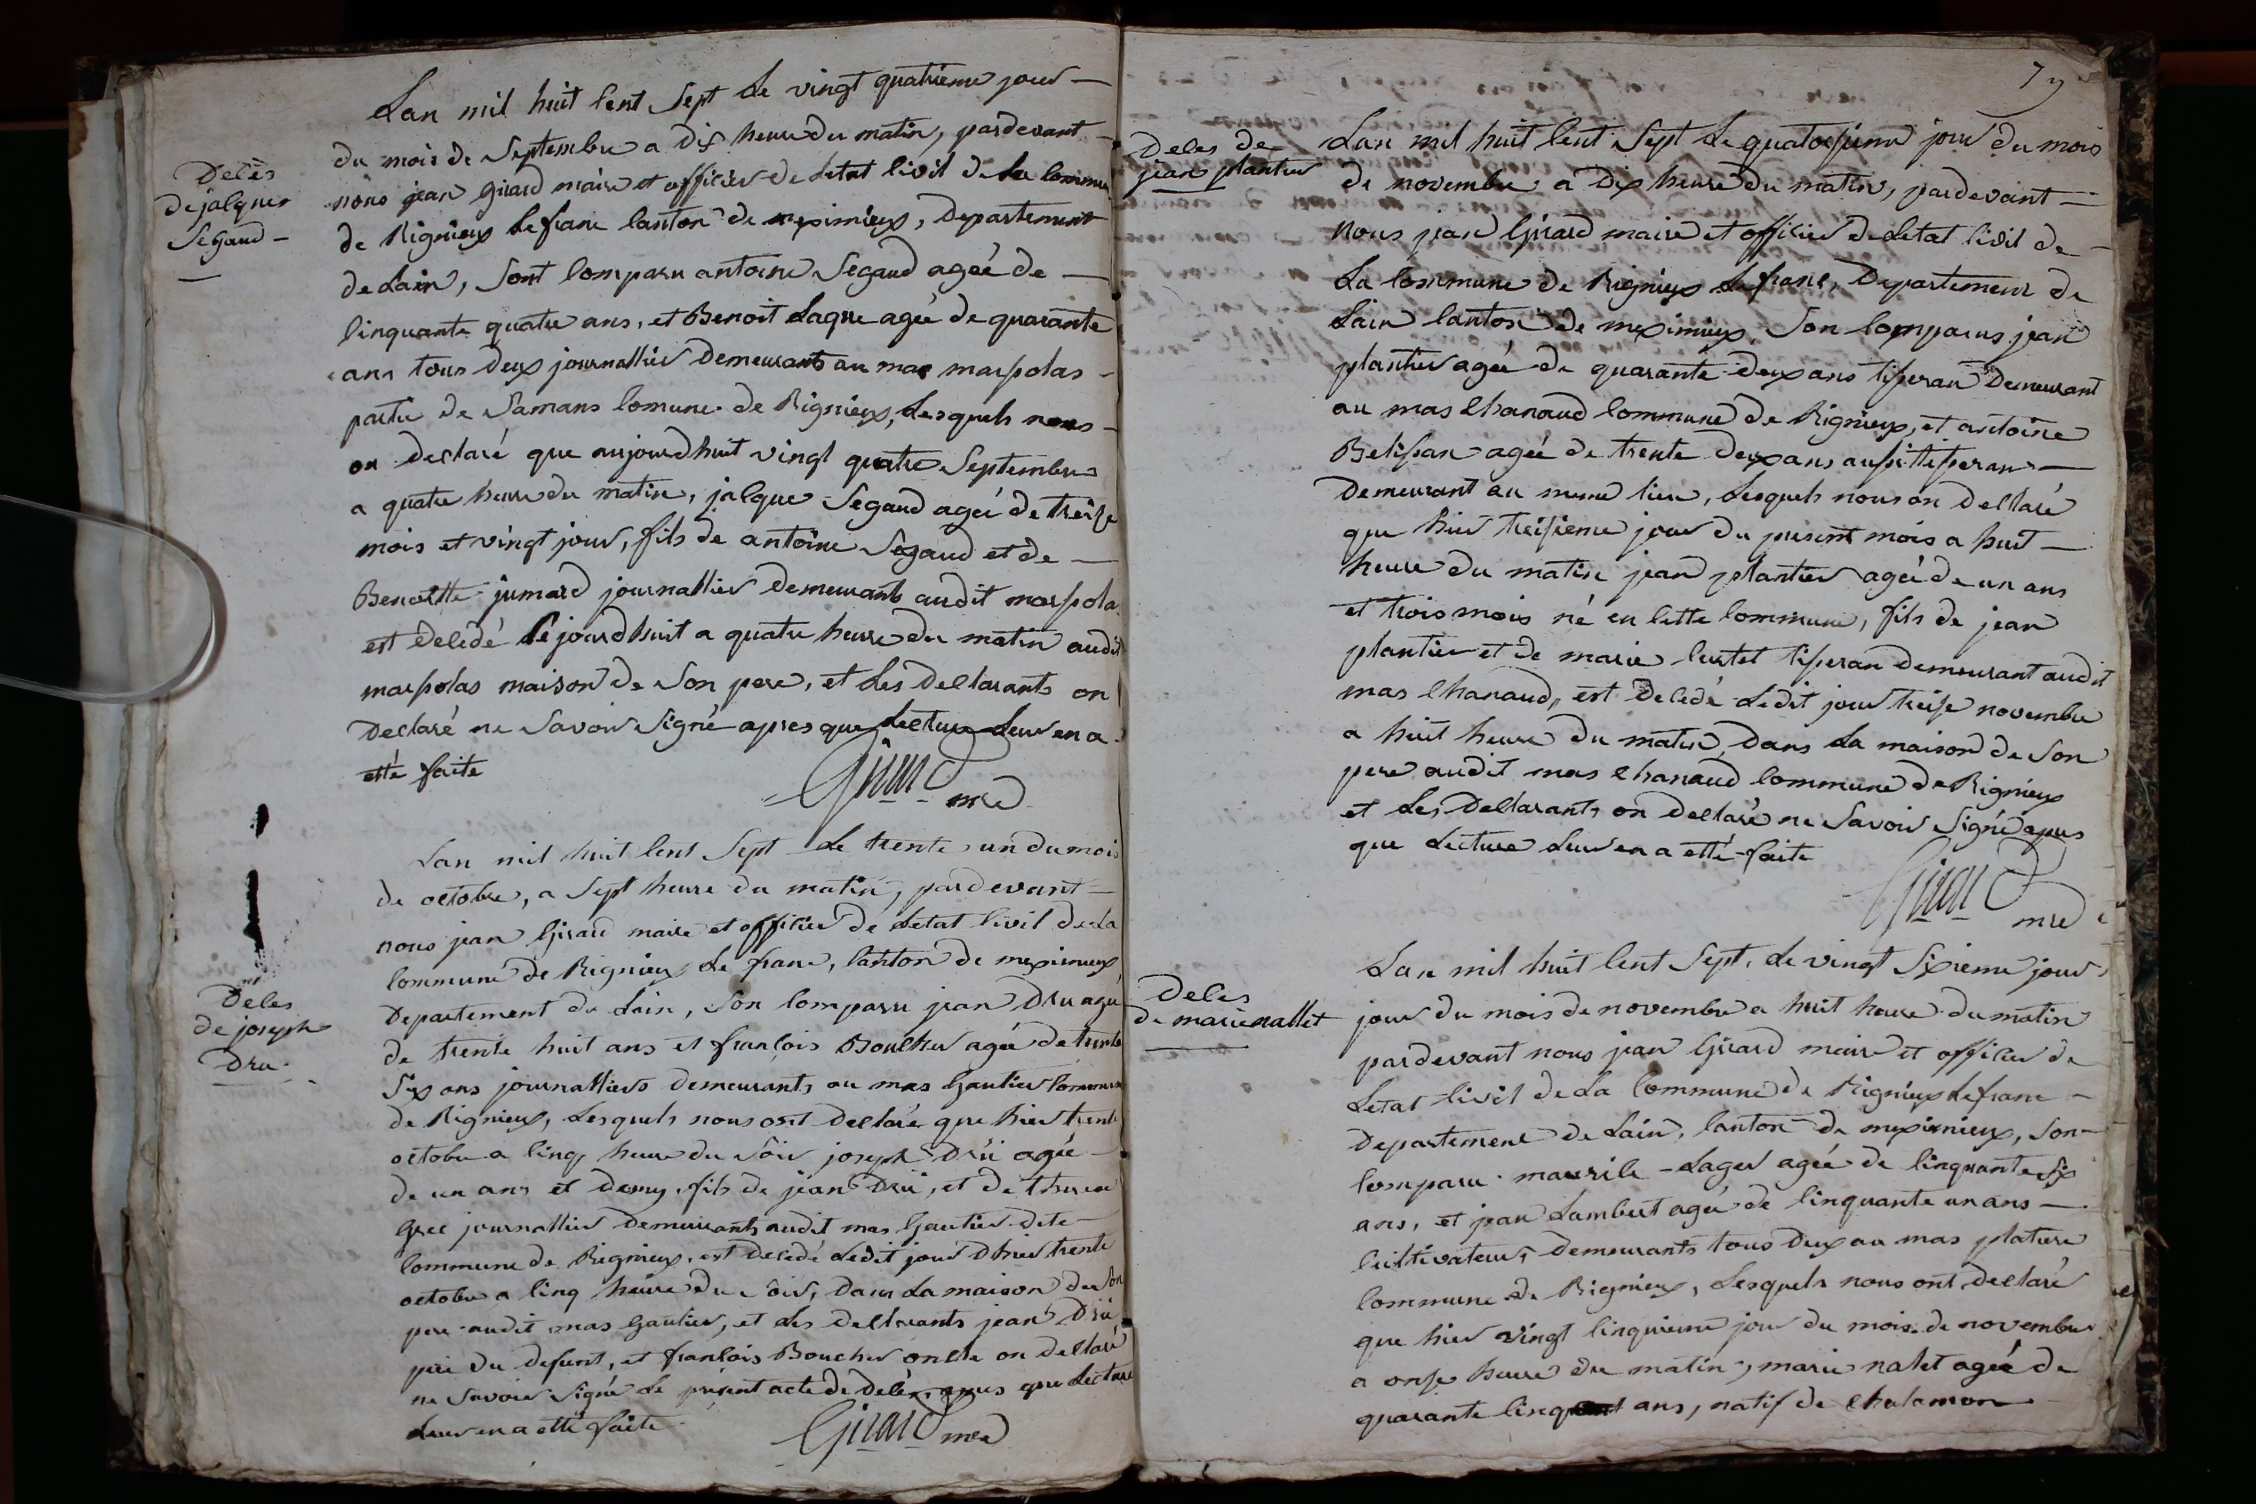 Décès
de jalques
Segaud
Lan mil huit Cent Sept Le vingt quatrieme jour
du mois de Septembre a Dix heure du matin, pardevant
nous jean Girard maire et officier de Letat Civil de La Commune
de Rignieux Lefranc Canton de meximieux, Departement
de Lain, sont Comparu antoine Segaud ageé de
Cinquante quatre ans, et Benoit Laque ageé de quarante
ans tous Deux journallier Demeurants au mas maspolas
partie de Samans Comune de Rignieux, Lesquels nous
on declaré que aujourdhuit vingt quatre Septembre
a quatre heure du matin, jalque Segaud ageé de treize
mois et vingt jour, fils de antoine Segaud et de
Benoitte jumard journallier Demeurants audit maspolas
est Decedé Cejourdhuit a quatre heure du matin audit
maspolas maison de Son pere, et Les Declarants on
Declaré ne Savoir Signé apres que Lecture Leur en a
etté faite
Girard mre
Deces
de joseph
Dru
Lan mil huit Cent Sept Le trente un du mois
de octobre, a Sept heure du matin, pardevant
nous jean Girard maire et officier de Letat Civil de La
Commune de Rignieux Le franc, Canton de meximieux
Departement de Lain, Son Comparu jean Dru ageé
de trente huit ans et francois Boucher ageé de trente
Six ans journalliers demeurants au mas Gautier Commune
de Rignieux, Lesquels nous ont Declaré que hier trente
octobre a Cinq heure du Soir joseph Drü ageé
de un ans et Demy, fils de jean Drü, et de therese
Grec journallier Demeurants audit mas Gautier dite
Commune de Rignieux, est Decedé Ledit jour Dhier trente
octobre a Cinq heure du Soir, Dans La maison de Son
pere audit mas Gautier, et Les Declarants jean Drü
pere du defunt, et francois Boucher oncle on Declaré
ne Savoir Signé Le présent acte de Deces, apres que Lecture
Leur en a etté faite
Girard mre
79
Deces de
jean plantier
Lan mil huit Cent Sept Le quatorzieme jour du mois
de novembre a Dix heure du matin, pardevant
nous jean Girard maire et officier de Letat Civil de
La Commune de Rignieux Lefranc, Departement de
Lain Canton de meximieux, Son Comparus jean
plantier ageé de quarante deux ans tisseran Demeurant
au mas Chanaud Commune de Rignieux, et antoine
Belissan ageé de trente Deux ans aussi tisseran
Demeurant au meme lieu, Lesquels nous on Declaré
que hier treisieme jour du present mois a huit
heure du matin jean plantier ageé de un ans
et trois mois né en Cette Commune, fils de jean
plantier et de marie Curtet tisseran demeurant audit
mas Chanaud, est Decedé Ledit jour treise novembre
a huit heure du matin, Dans La maison de Son
pere audit mas Chanaud Commune de Rignieux
et Les Declarants on Declaré ne Savoir Signé apres
que Lecture Leur en a etté faite
Girard mre
Deces
de marie nallet
Lan mil huit Cent Sept, Le vingt Sixieme jour
jour du mois de novembre a huit heure du matin
pardevant nous jean Girard maire et officier de
Letat Civil de La Commune de Rignieux Lefranc
Departement de Lain, Canton de meximieux, Son
Comparu maurile Lager ageé de Cinquante Six
ans, et jean Lambert ageé de Cinquante un ans
Cultivateurs Demeurants tous Deux au mas platiere
Commune de Rignieux, Lesquels nous ont declaré
que hier vingt Cinquieme jour du mois de novembre
a onse heure du matin, marie nalet ageé de
quarante Cinq ans, natif de Chalamon